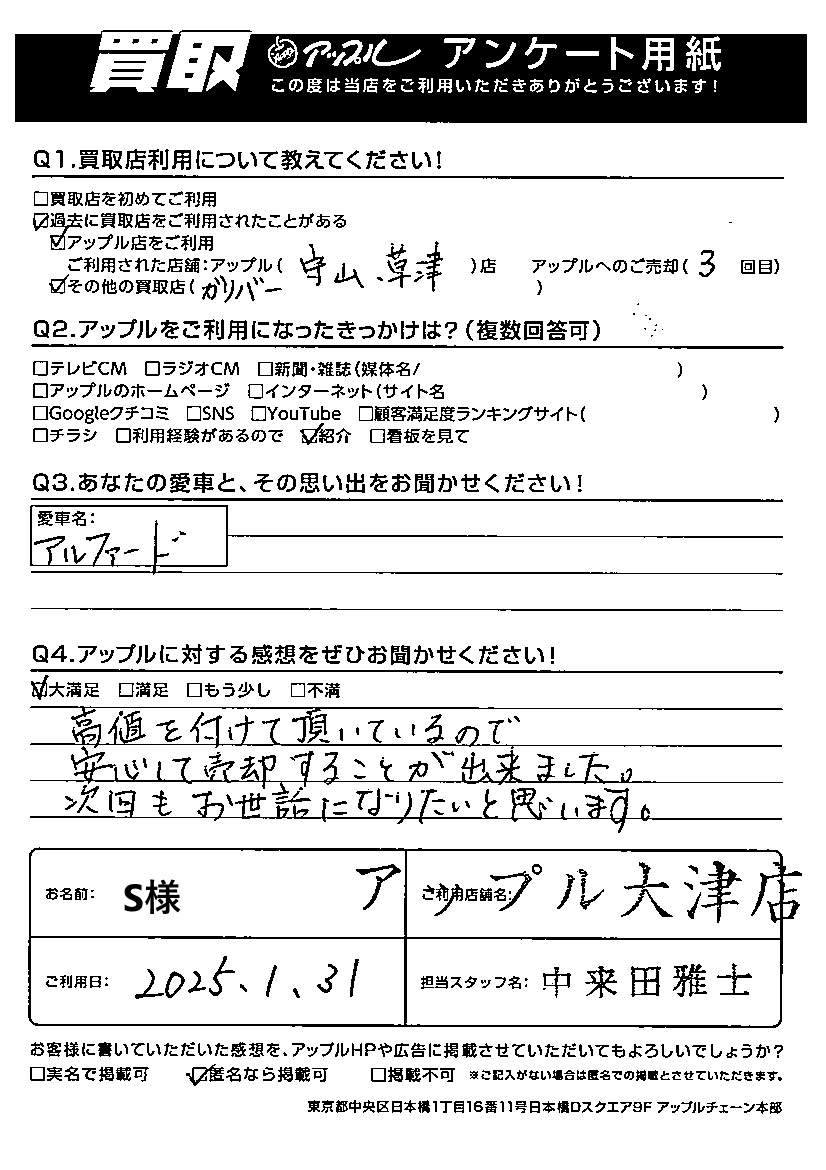 買取 アップル アンケート用紙
この度は当店をご利用いただきありがとうございます!
Q1.買取店利用について教えてください!
□買取店を初めてご利用
☑過去に買取店をご利用されたことがある
☑アップル店をご利用
ご利用された店舗:アップル( 守山、草津 )店 アップルへのご売却( 3 回目)
☑その他の買取店( ガリバー )
Q2.アップルをご利用になったきっかけは?(複数回答可)
□テレビCM □ラジオCM □新聞・雑誌(媒体名/ )
□アップルのホームページ □インターネット(サイト名 )
□Googleクチコミ □SNS □YouTube □顧客満足度ランキングサイト( )
□チラシ □利用経験があるので ☑紹介 □看板を見て
Q3.あなたの愛車と、その思い出をお聞かせください!
愛車名:
アルファード
Q4.アップルに対する感想をぜひお聞かせください!
☑大満足 □満足 □もう少し □不満
高値を付けて頂いているので
安心して売却することが出来ました。
次回もお世話になりたいと思います。
お名前: S様 ご利用店舗名: アップル大津店
ご利用日: 2025、1、31 担当スタッフ名: 中来田雅士
お客様に書いていただいた感想を、アップルHPや広告に掲載させていただいてもよろしいでしょうか?
□実名で掲載可 ☑匿名なら掲載可 □掲載不可 ※ご記入がない場合は匿名での掲載とさせていただきます。
東京都中央区日本橋1丁目16番11号日本橋Dスクエア9F アップルチェーン本部